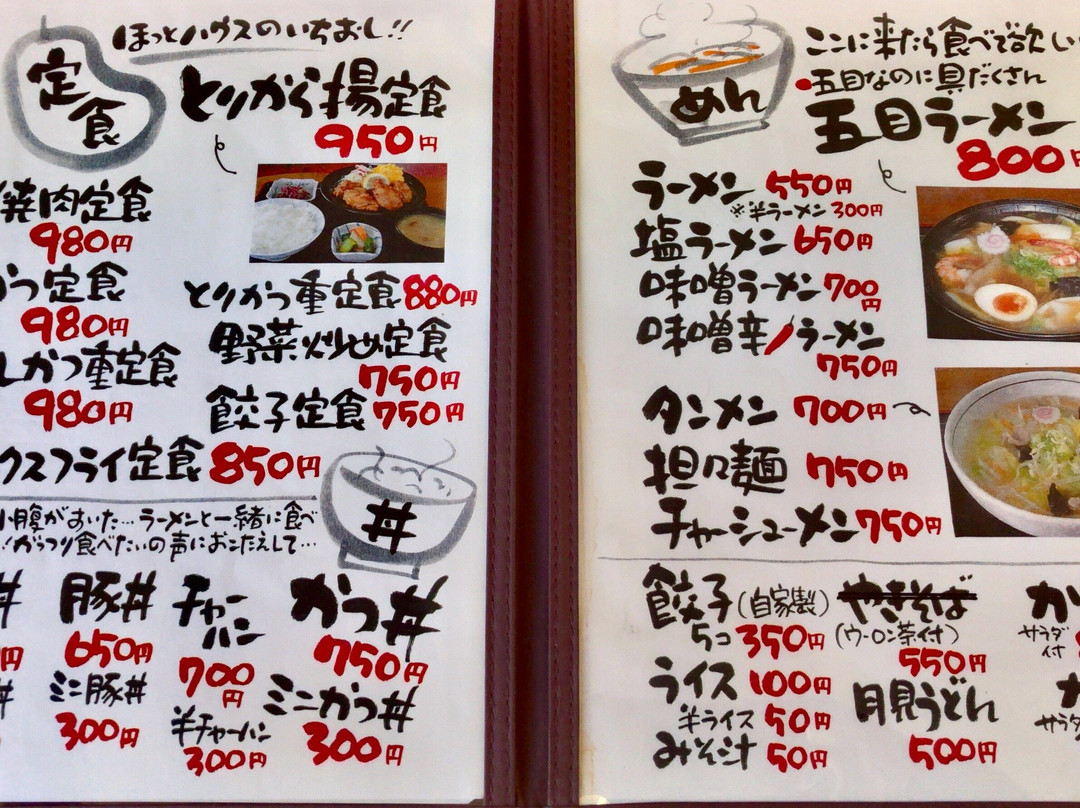 定食
ほっとハウスのいちおし!!
とりから揚定食
950円
焼肉定食
980円
かつ定食
980円
しかつ重定食
980円
とりかつ重定食 880円
野菜炒め定食
750円
餃子定食 750円
クスフライ定食 850円
小腹がすいた…ラーメンと一緒に食べ
がっつり食べたいの声におこたえして…
丼
丼
円
丼
豚丼
650円
ミニ豚丼
300円
チャーハン
700円
半チャーハン
300円
かつ丼
750円
ミニかつ丼
300円
めん
ここに来たら食べて欲しい
•五目なのに具だくさん
五目ラーメン
800円
ラーメン 550円
※半ラーメン 300円
塩ラーメン 650円
味噌ラーメン 700円
味噌辛ラーメン
750円
タンメン 700円
担々麺 750円
チャーシューメン 750円
餃子(自家製)
5コ 350円
ライス 100円
半ライス 50円
みそ汁 50円
やきそば
(ウーロン茶付)
550円
月見うどん
500円
カ
サラダ付
サラダ